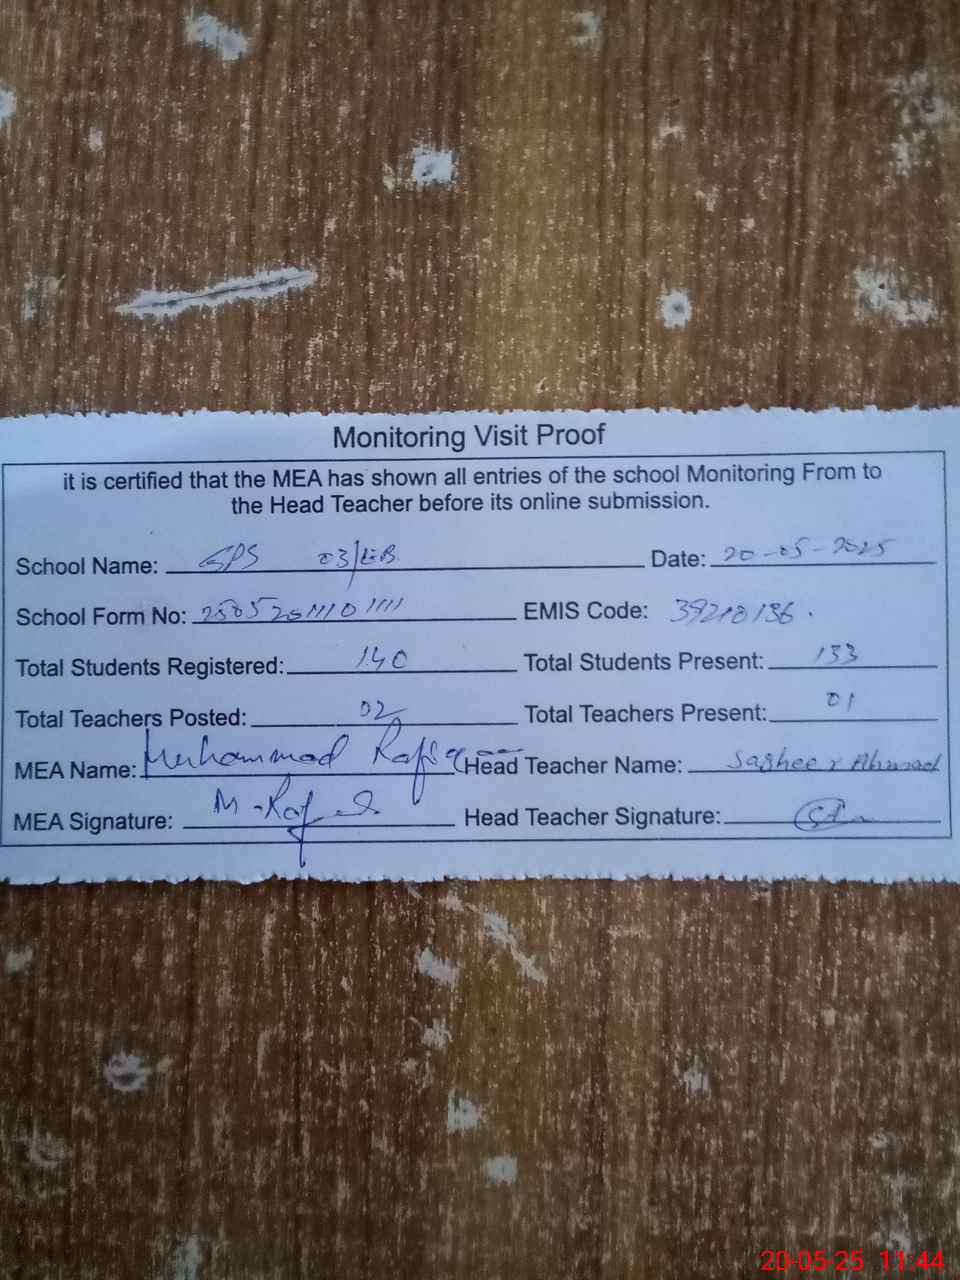 Monitoring Visit Proof
it is certified that the MEA has shown all entries of the school Monitoring From to
the Head Teacher before its online submission.
School Name: GPS 03/EB. Date: 20-05-2025
School Form No: EMIS Code: 39210136.
Total Students Registered: 140 Total Students Present: 133
Total Teachers Posted: 02 Total Teachers Present: 01
MEA Name: Muhammad Rafiq Head Teacher Name: Sagheer Ahmad
MEA Signature: Head Teacher Signature:
20-05-25 11:44